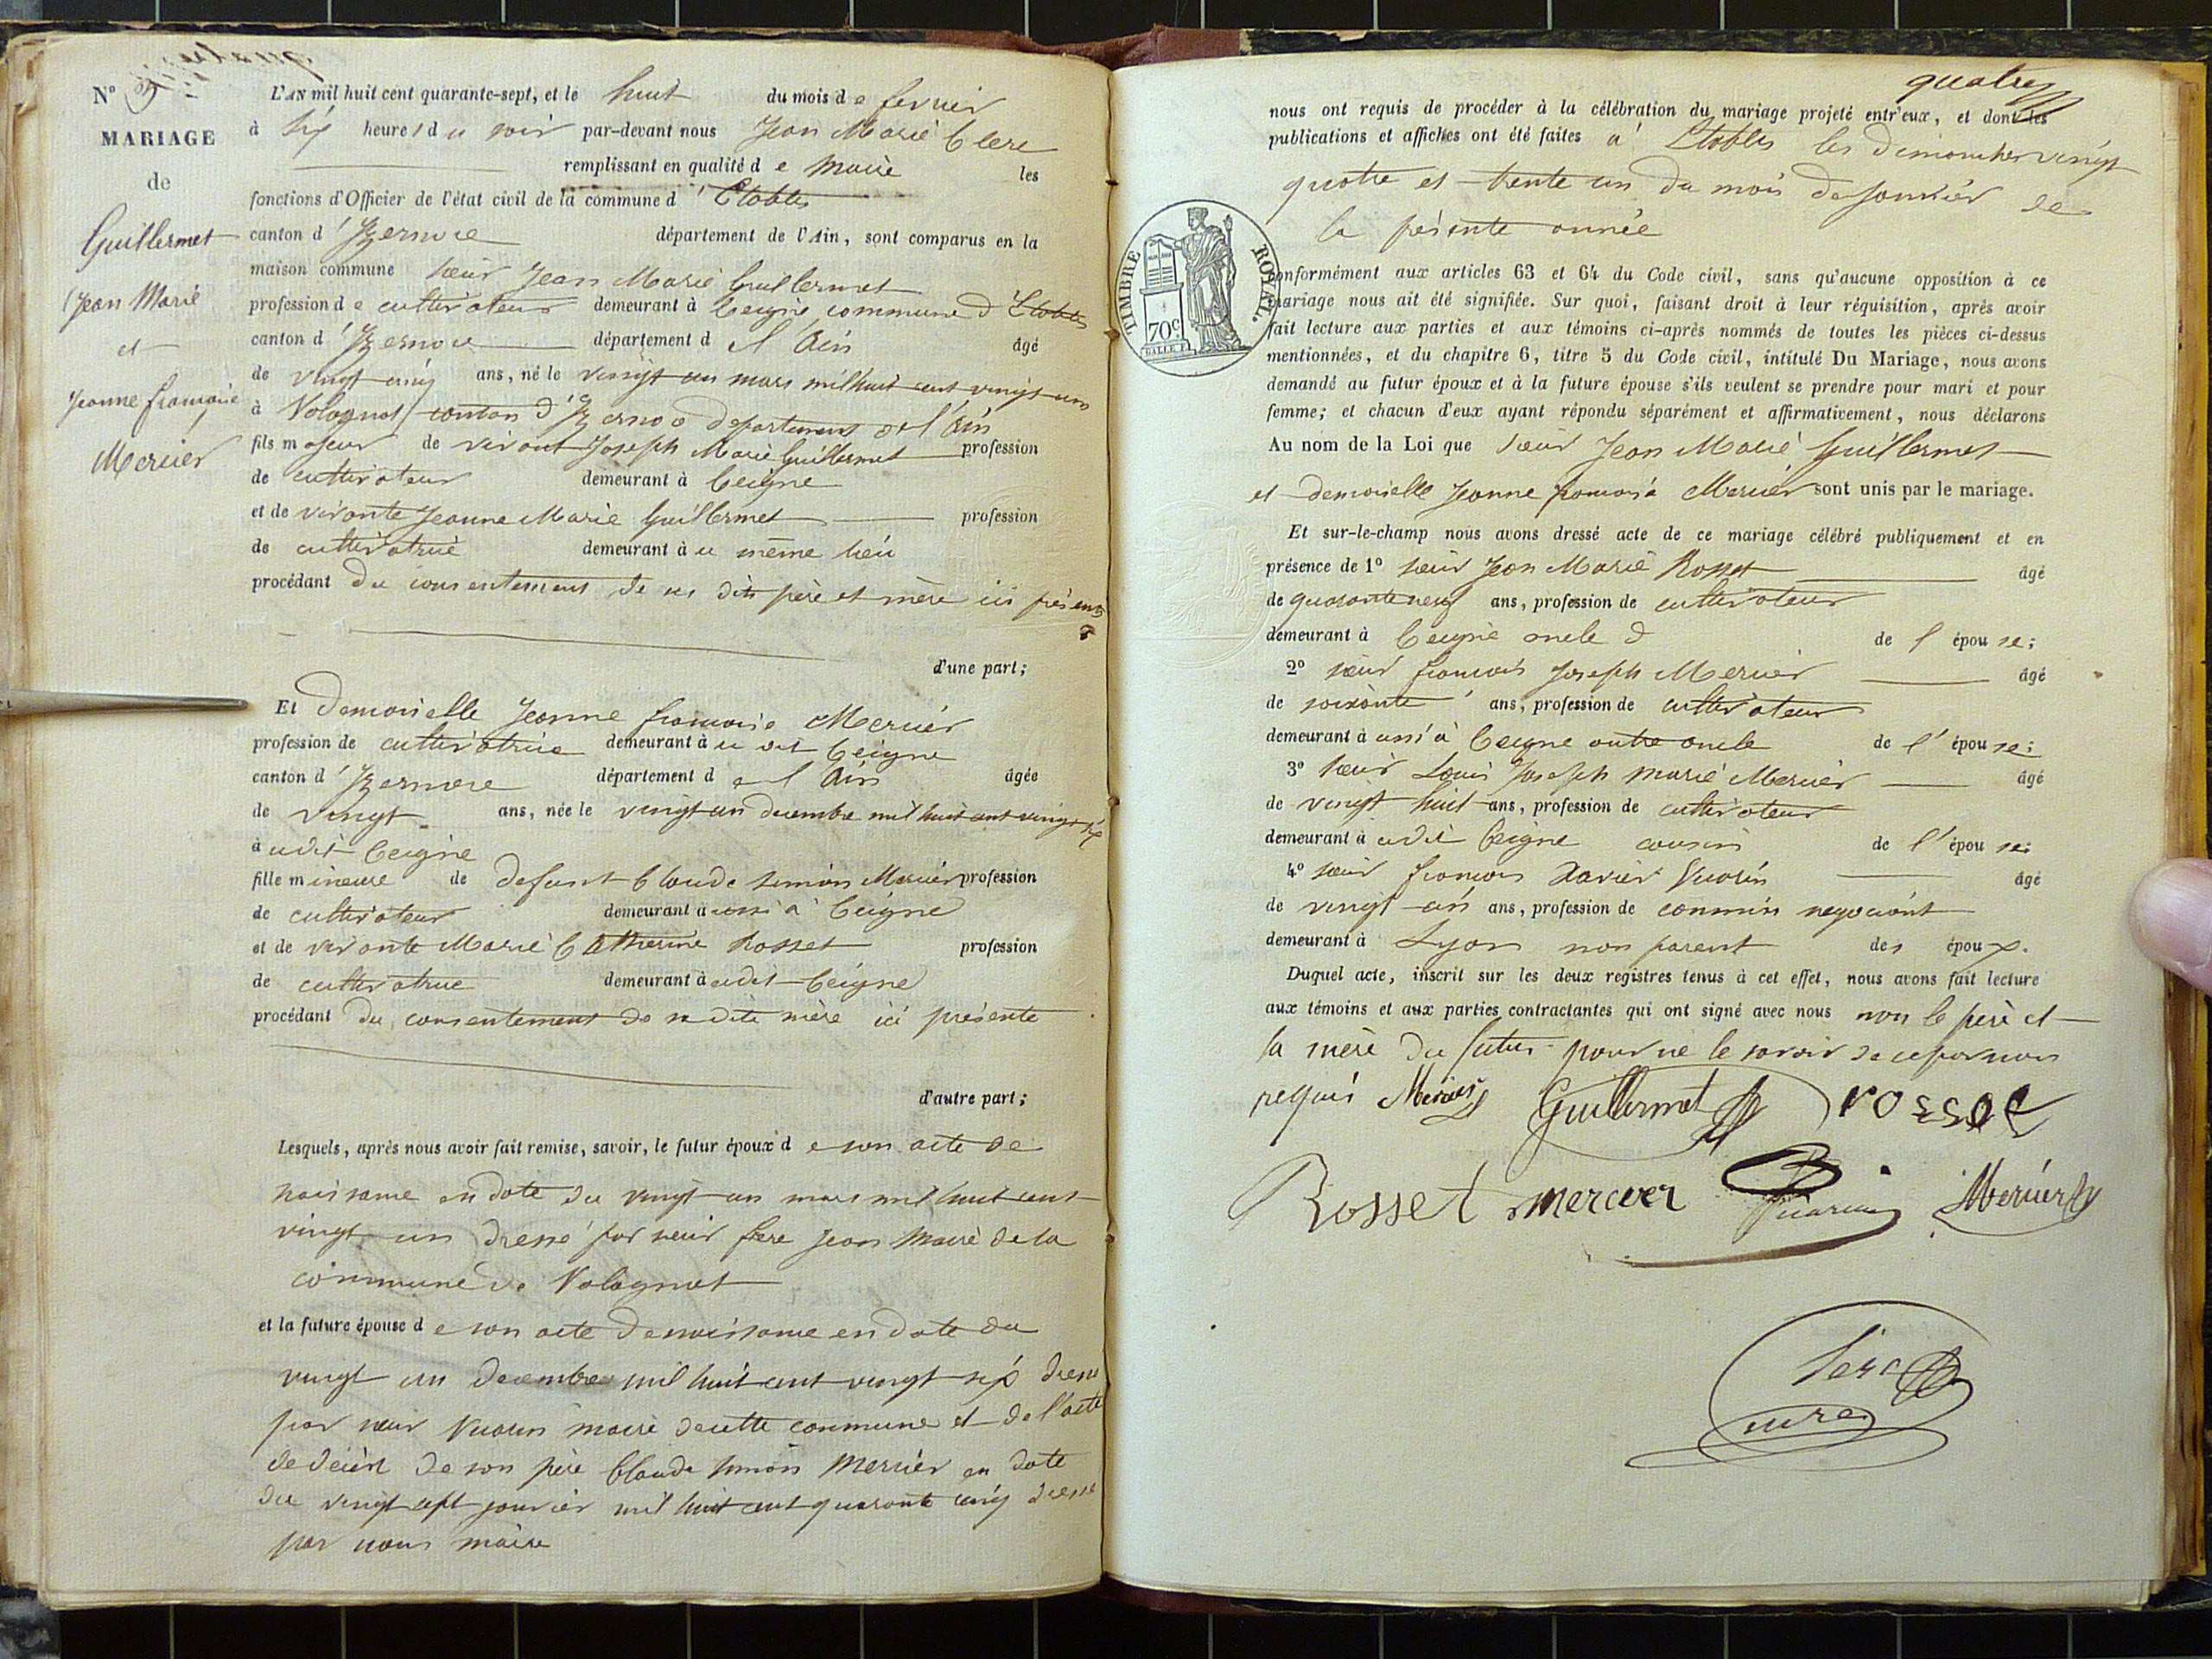 N°
MARIAGE
de
Guillermet
Jean Marie
et
Jeanne françoise
Mercier
L'AN mil huit cent quarante-sept, et le huit du mois de fevrier
à six heures du soir par-devant nous Jean Marie Clerc
remplissant en qualité de maire les
fonctions d'Officier de l'état civil de la commune d'Etables
canton d'Izernore département de l'Ain, sont comparus en la
maison commune sieur Jean Marie Guillermet
profession de cultivateur demeurant à Ceigne commune d'Etables
canton d'Izernore département de l'Ain âgé
de vingt cinq ans, né le vingt un mars mil huit cent vingt un
à Volognat canton d'Izernore departement de l'Ain
fils majeur de vivant Joseph Marie Guillermet profession
de cultivateur demeurant à Ceigne
et de vivante Jeanne Marie Guillermet profession
de cultivatrice demeurant àu même lieu
procédant du consentement de ses dits père et mère ici présents
d'une part;
Et demoiselle Jeanne françoise Mercier
profession de cultivatrice demeurant àu dit Ceigne
canton d'Izernore département de l'Ain âgée
de vingt ans, née le vingt un decembre mil huit cent vingt six
àudit Ceigne
fille mineure de defunt Claude simon Mercier profession
de cultivateur demeurant aussi à Ceigne
et de vivante Marie Catherine Rosset profession
de cultivatrice demeurant àudit Ceigne
procédant du consentement de sa dite mère ici présente
d'autre part;
Lesquels, après nous avoir fait remise, savoir, le futur époux de son acte de
naissance en date du vingt un mars mil huit cent
vingt un dressé par sieur frere Jean maire de la
commune de Volognat
et la future épouse de son acte de naissance en date du
vingt un decembre mil huit cent vingt six dressé
par sieur Vuarin maire de cette commune et de l'acte
de décès de son père Claude simon Mercier en date
du vingt sept janvier mil huit cent quarante cinq dressé
par nous maire
quatre
nous ont requis de procéder à la célébration du mariage projeté entr'eux, et dont les
publications et affiches ont été faites à Etables les dimanches vingt
quatre et trente un du mois de janvier de
la présente année
TIMBRE ROYAL.
70c
conformément aux articles 63 et 64 du Code civil, sans qu'aucune opposition à ce
mariage nous ait été signifiée. Sur quoi, faisant droit à leur réquisition, après avoir
fait lecture aux parties et aux témoins ci-après nommés de toutes les pièces ci-dessus
mentionnées, et du chapitre 6, titre 5 du Code civil, intitulé Du Mariage, nous avons
demandé au futur époux et à la future épouse s'ils veulent se prendre pour mari et pour
femme; et chacun d'eux ayant répondu séparément et affirmativement, nous déclarons
Au nom de la Loi que sieur Jean Marie Guillermet
et demoiselle Jeanne françoise Mercier sont unis par le mariage.
Et sur-le-champ nous avons dressé acte de ce mariage célébré publiquement et en
présence de 1° sieur Jean Marie Rosset âgé
de quarante neuf ans, profession de cultivateur
demeurant à Ceigne oncle de l'épouse;
2° sieur francois Joseph Mercier âgé
de soixante ans, profession de cultivateur
demeurant aussi à Ceigne outre oncle de l'épouse;
3° sieur Louis Joseph marie Mercier âgé
de vingt huit ans, profession de cultivateur
demeurant àudit Ceigne cousin de l'épouse;
4° sieur francois Xavier Vuarin âgé
de vingt ans, profession de commis negociant
demeurant à Lyon non parent des époux.
Duquel acte, inscrit sur les deux registres tenus à cet effet, nous avons fait lecture
aux témoins et aux parties contractantes qui ont signé avec nous non le père et
la mère du futur pour ne le savoir de ce par nous
requis Mercier Guillermet rosset
Rosset mercier Vuarin Mercier
Clerc